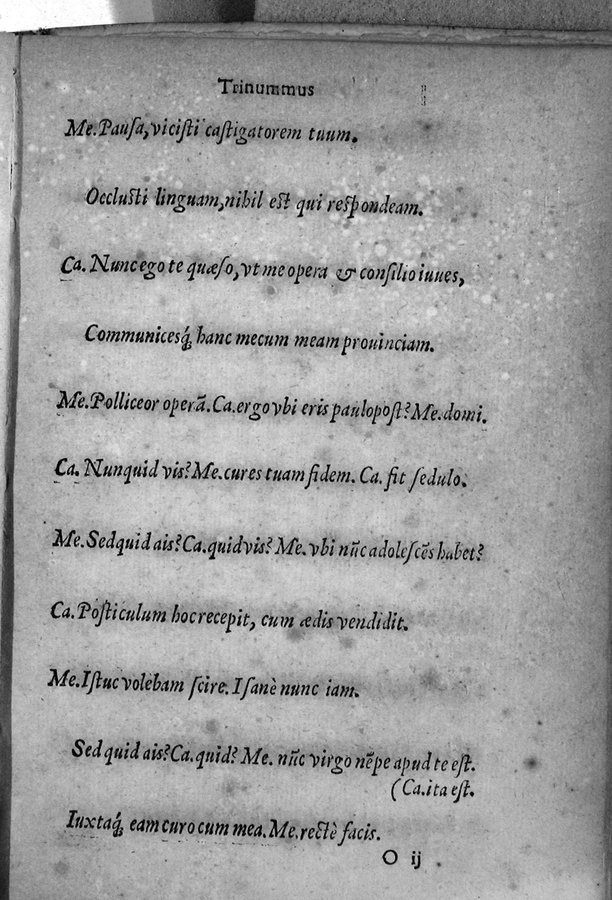 Trinummus
Me.Pausa,vicisti castigatorem tuum.
Occlusti linguam,nihil est qui respondeam.
Ca. Nunc ego te quæso,vt me opera & consilio iuues,
Communicesq́; hanc mecum meam prouinciam.
Me.Polliceor operā.Ca.ergo vbi eris paulopost?Me.domi.
Ca. Nunquid vis?Me.cures tuam fidem. Ca. fit sedulo.
Me.Sed quid ais?Ca.quid vis? Me. vbi nūc adolescēs habet?
Ca.Posticulum hoc recepit, cum ædis vendidit.
Me.Istuc volebam scire. I sanè nunc iam.
Sed quid ais?Ca.quid? Me. nūc virgo nēpe apud te est.
(Ca.ita est.
Iuxtaq́; eam curo cum mea.Me.rectè facis.
O ij